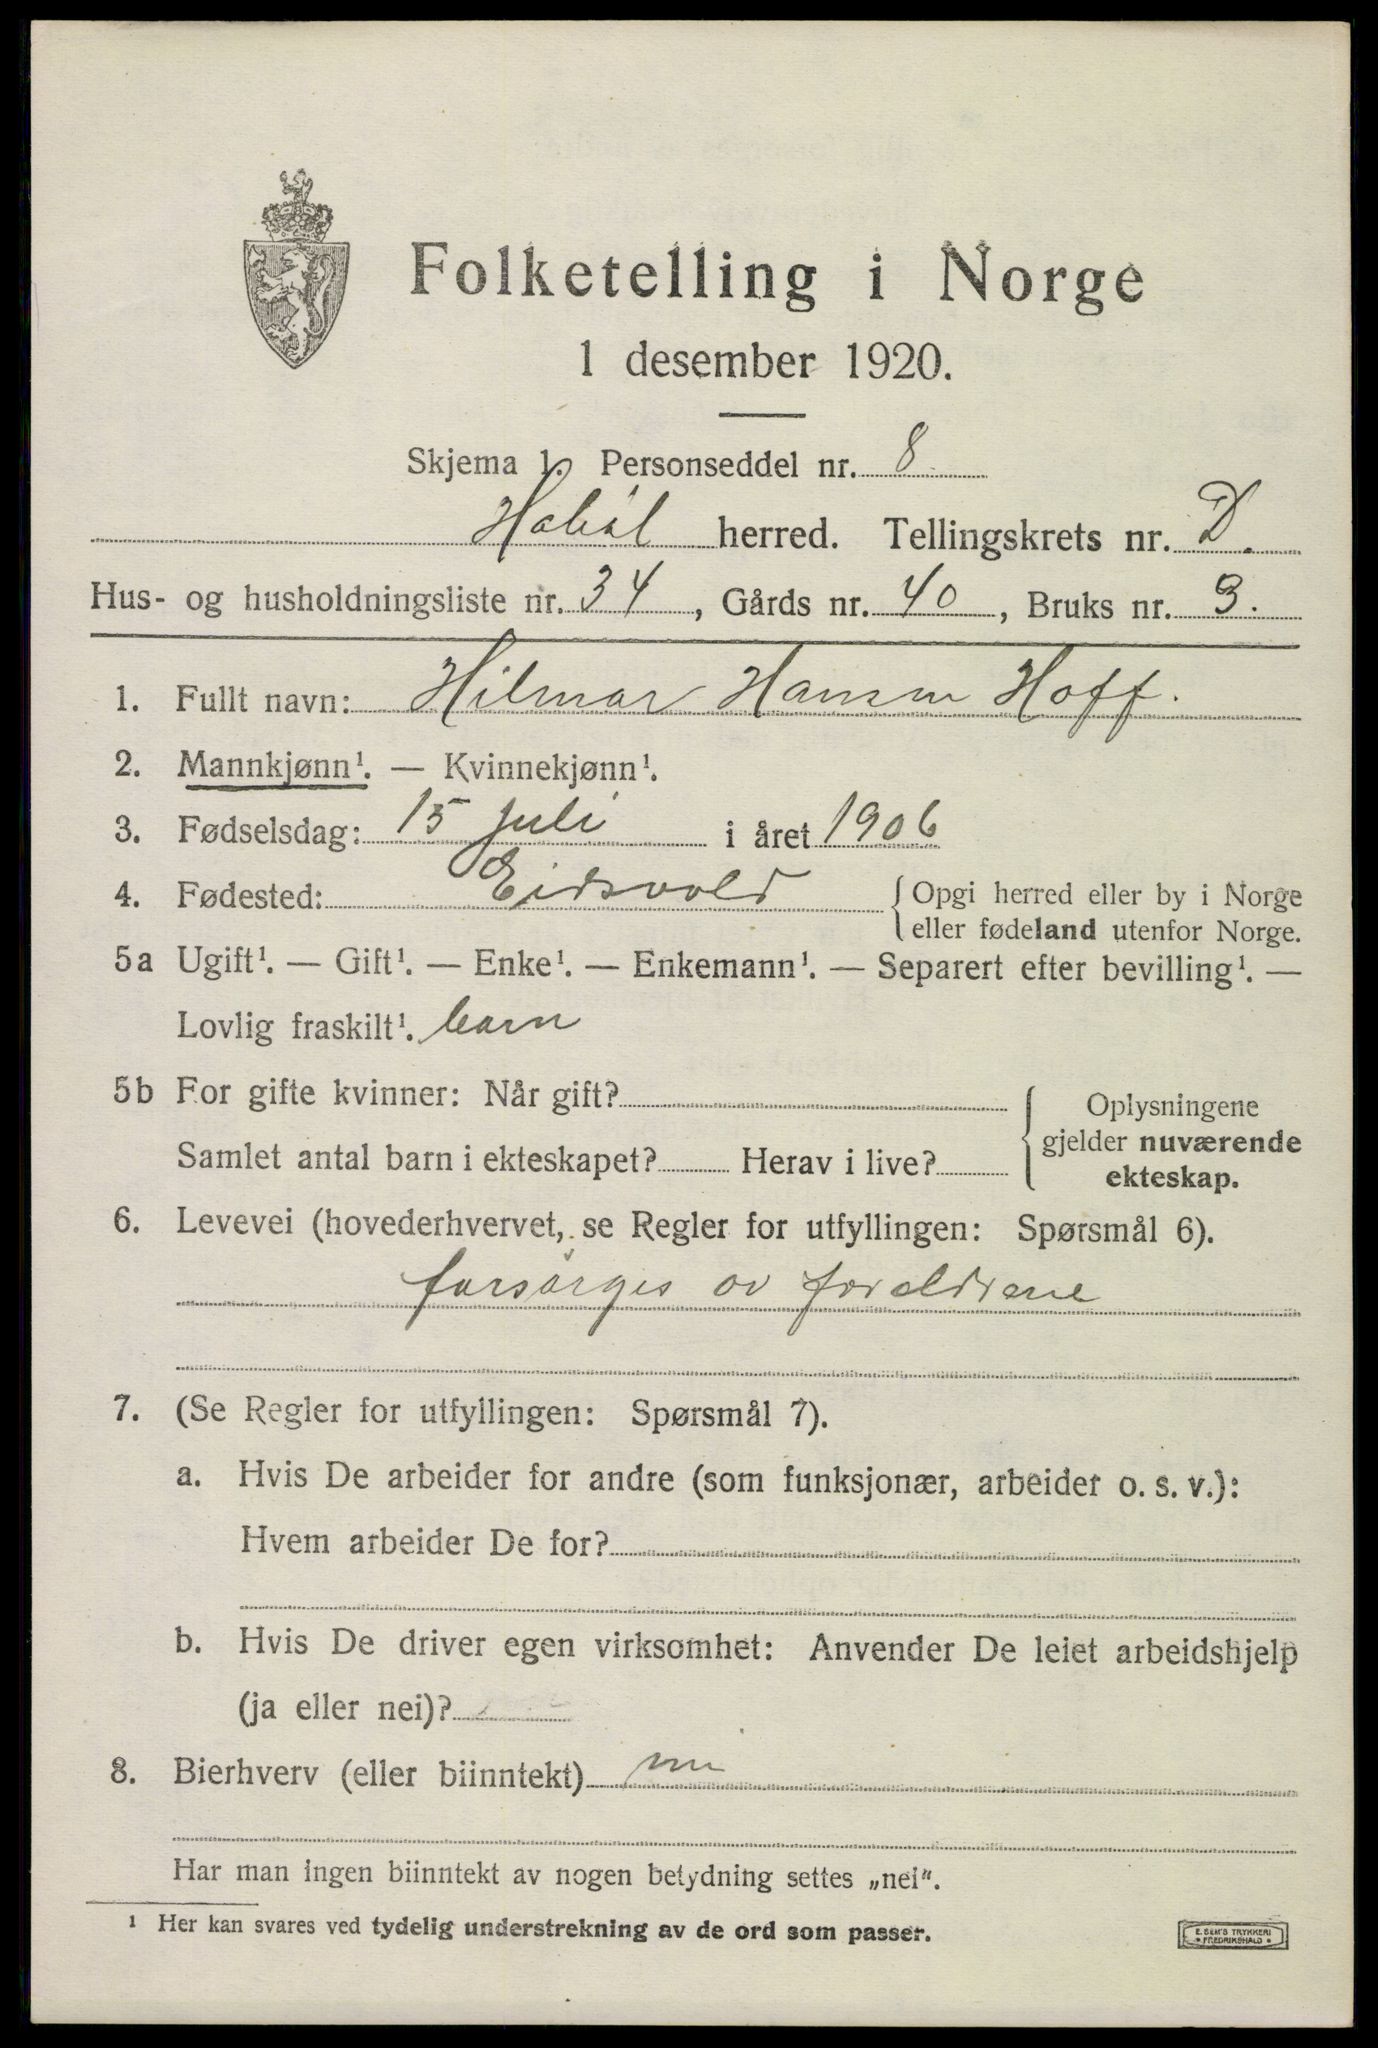 Folketelling i Norge
1 desember 1920.
Skjema 1. Personseddel nr. 8
Hobøl herred. Tellingskrets nr. D.
Hus- og husholdningsliste nr. 34, Gårds nr. 40, Bruks nr. 3.
1. Fullt navn: Hilmar Hansen Hoff.
2. Mannkjønn¹. — Kvinnekjønn¹.
3. Fødselsdag: 15 juli i året 1906
4. Fødested: Eidsvold {Opgi herred eller by i Norge
eller fødeland utenfor Norge.
5a Ugift¹. — Gift¹. — Enke¹. — Enkemann¹. — Separert efter bevilling¹. —
Lovlig fraskilt¹. barn
5b For gifte kvinner: Når gift?
Samlet antal barn i ekteskapet? Herav i live?
{Oplysningene
gjelder nuværende
ekteskap.
6. Levevei (hovederhvervet, se Regler for utfyllingen: Spørsmål 6).
forsørges av foreldrene
7. (Se Regler for utfyllingen: Spørsmål 7).
a. Hvis De arbeider for andre (som funksjonær, arbeider o. s. v.):
Hvem arbeider De for?
b. Hvis De driver egen virksomhet: Anvender De leiet arbeidshjelp
(ja eller nei)?
8. Bierhverv (eller biinntekt) nei
Har man ingen biinntekt av nogen betydning settes „nei“.
¹ Her kan svares ved tydelig understrekning av de ord som passer.
E. SEM'S TRYKKERI
• FREDRIKSHALD •